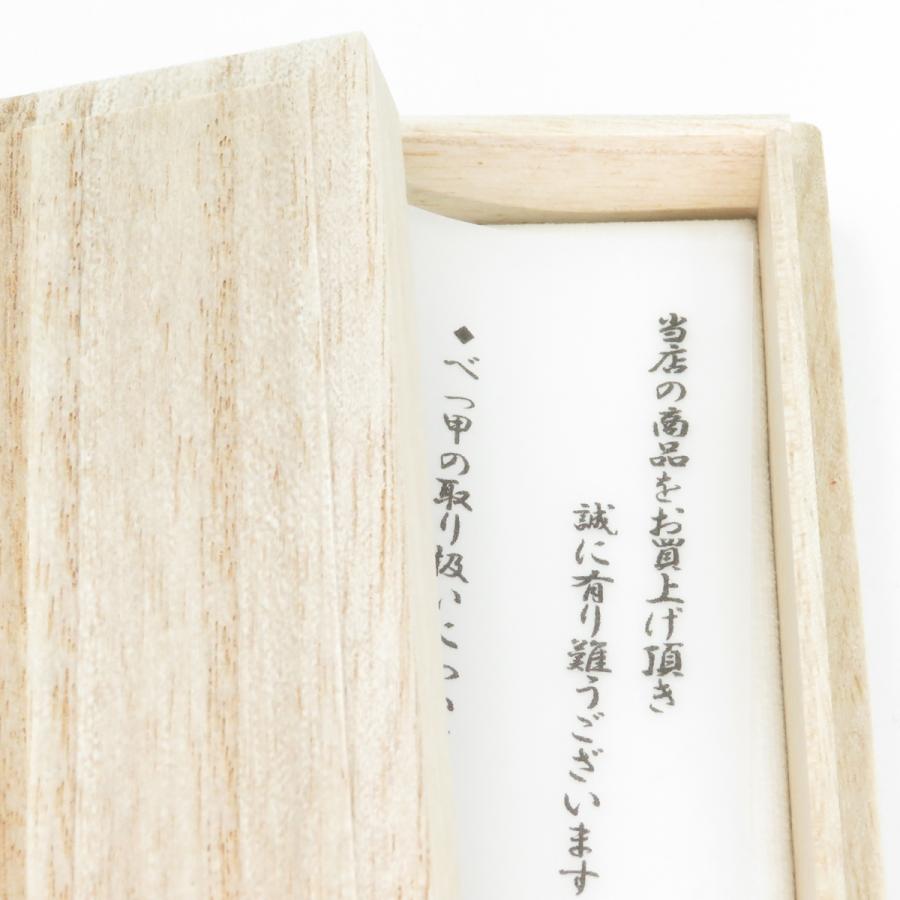 当店の商品をお買上げ頂き
誠に有り難うございます
◆べっ甲の取り扱いについ